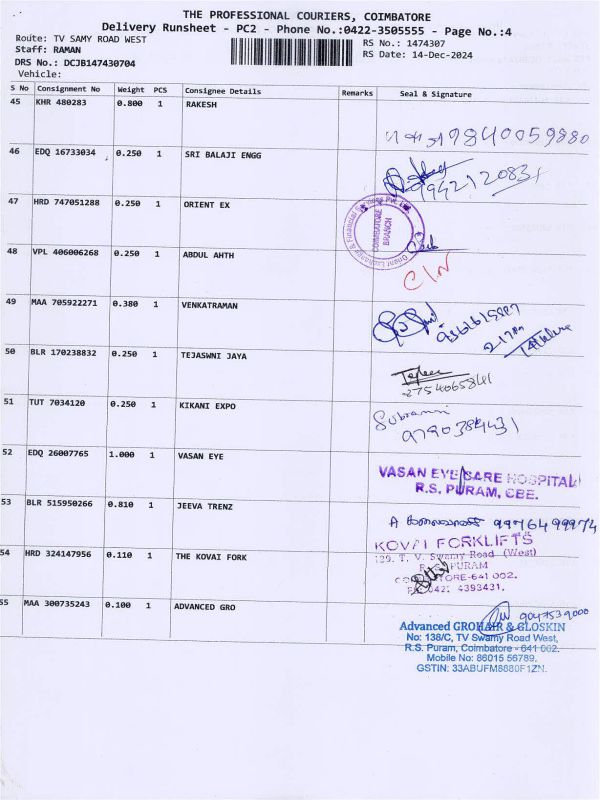 THE PROFESSIONAL COURIERS, COIMBATORE
Delivery Runsheet - PC2 - Phone No.:0422-3505555 - Page No.:4
Route: TV SAMY ROAD WEST
RS No.: 1474307
Staff: RAMAN
RS Date: 14-Dec-2024
DRS No.: DCJB147430704
Vehicle:
S No Consignment No Weight PCS Consignee Details Remarks Seal & Signature
45 KHR 480283 0.800 1 RAKESH
9840059880
46 EDQ 16733034 0.250 1 SRI BALAJI ENGG
47 HRD 747051288 0.250 1 ORIENT EX
Orient Exchange & Financial Services Pvt. Ltd.
COIMBATORE
BRANCH
48 VPL 406006268 0.250 1 ABDUL AHTH
C/N
49 MAA 705922271 0.380 1 VENKATRAMAN
50 BLR 170238832 0.250 1 TEJASWNI JAYA
51 TUT 7034120 0.250 1 KIKANI EXPO
9790384431
52 EDQ 26007765 1.000 1 VASAN EYE
VASAN EYE CARE HOSPITAL
R.S. PURAM, CBE.
53 BLR 515950266 0.810 1 JEEVA TRENZ
9976499974
54 HRD 324147956 0.110 1 THE KOVAI FORK
KOVAI FORKLIFTS
139, T. V. Swamy Road (West)
R.S. PURAM
COIMBATORE-641 002.
PH: 0421 4393431.
55 MAA 300735243 0.100 1 ADVANCED GRO
9047539000
Advanced GROHAIR & GLOSKIN
No: 138/C, TV Swamy Road West,
R.S. Puram, Coimbatore - 641 002.
Mobile No: 86015 56789.
GSTIN: 33ABUFM8880F1ZN.